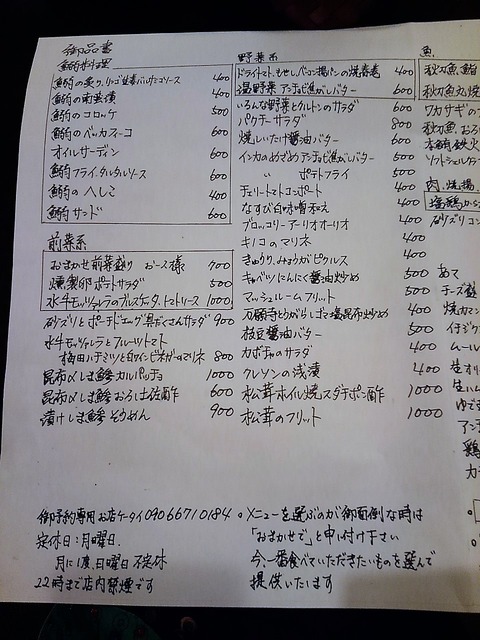 御品書
鰯料理
鰯の炙り、リンゴ生姜バルサミコソース 400
鰯の南蛮漬 400
鰯のコロッケ 500
鰯のベッカフィーコ 600
オイルサーディン 600
鰯フライ、タルタルソース 600
鰯のへしこ 400
鰯サンド 600
前菜系
おまかせ前菜盛り お一人様 700
燻製卵ポテトサラダ 500
水牛モッツァレラのブルスケッタ、トマトソース 1000
砂ズリとポーチドエッグ具だくさんサラダ 900
水牛モッツァレラとフルーツトマト
梅田ハチミツと白ワインビネガーのマリネ 800
昆布〆しま鯵カルパッチョ 1000
昆布〆しま鯵おろし土佐酢 600
漬けしま鯵そうめん 900
野菜系
ドライトマト、もやし、ベーコン揚パンの焼春巻 400
温野菜アンチョビ焦がしバター 600
いろんな野菜とクルトンのサラダ 600
パクチーサラダ 800
焼しいたけ醤油バター 600
インカのめざめアンチョビ焦がしバター 600
〃 ポテトフライ 500
チェリートマトコンポート 400
なすび白味噌和え 400
ブロッコリーアーリオオーリオ 400
キノコのマリネ 400
きゅうり、みょうがピクルス 400
キャベツにんにく醤油炒め 500
マッシュルームフリット 500
万願寺とうがらしごま塩昆布炒め 400
枝豆醤油バター 500
カボチャのサラダ 400
クレソンの浅漬 400
松茸ホイル焼スダチポン酢 1000
松茸のフリット 1000
魚
秋刀魚、鰯
秋刀魚丸焼
ワカサギの
秋刀魚、おろ
本鮪鉄火
ソフトシェルクラ
肉、焼揚
塩鶏から
砂ズリコン
あて
チーズ盛
焼カマン
イチジク
ムール
生ハム
ゆで
アン
鶏
カラ
御予約専用お店ケータイ09066710184
定休日:月曜日、
月に1度、日曜日不定休
22時まで店内禁煙です
○メニューを選ぶのが御面倒な時は
「おまかせで」と申し付け下さい
今、一番食べていただきたいものを選んで
提供いたします